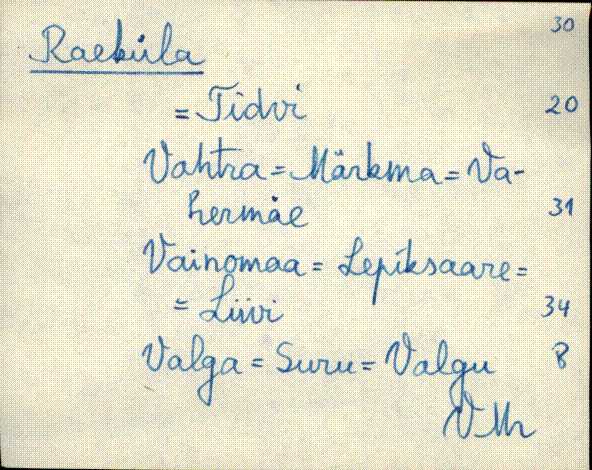 30
Raeküla
= Tidvi 20
Vahtra = Märkma = Va-
hermäe 31
Vainomaa = Lepiksaare =
= Liivi 34
Valga = Suru = Valgu 8